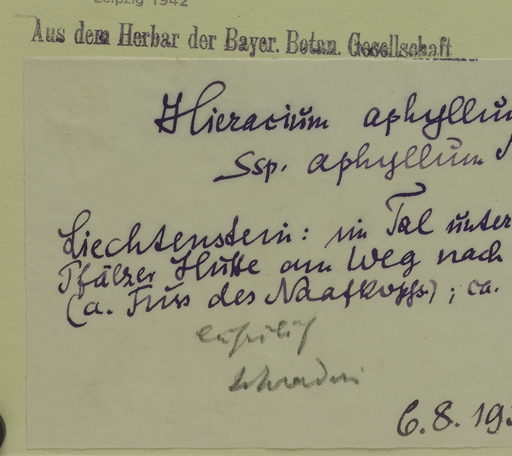 Leipzig 1942
Aus dem Herbar der Bayer. Botan. Gesellschaft
Hieracium aphyllum
Ssp. aphyllum
Liechtenstein: im Tal unter
Pfälzer Hütte am Weg nach
(a. Fuss des Naafkopfs); ca.
6.8.19